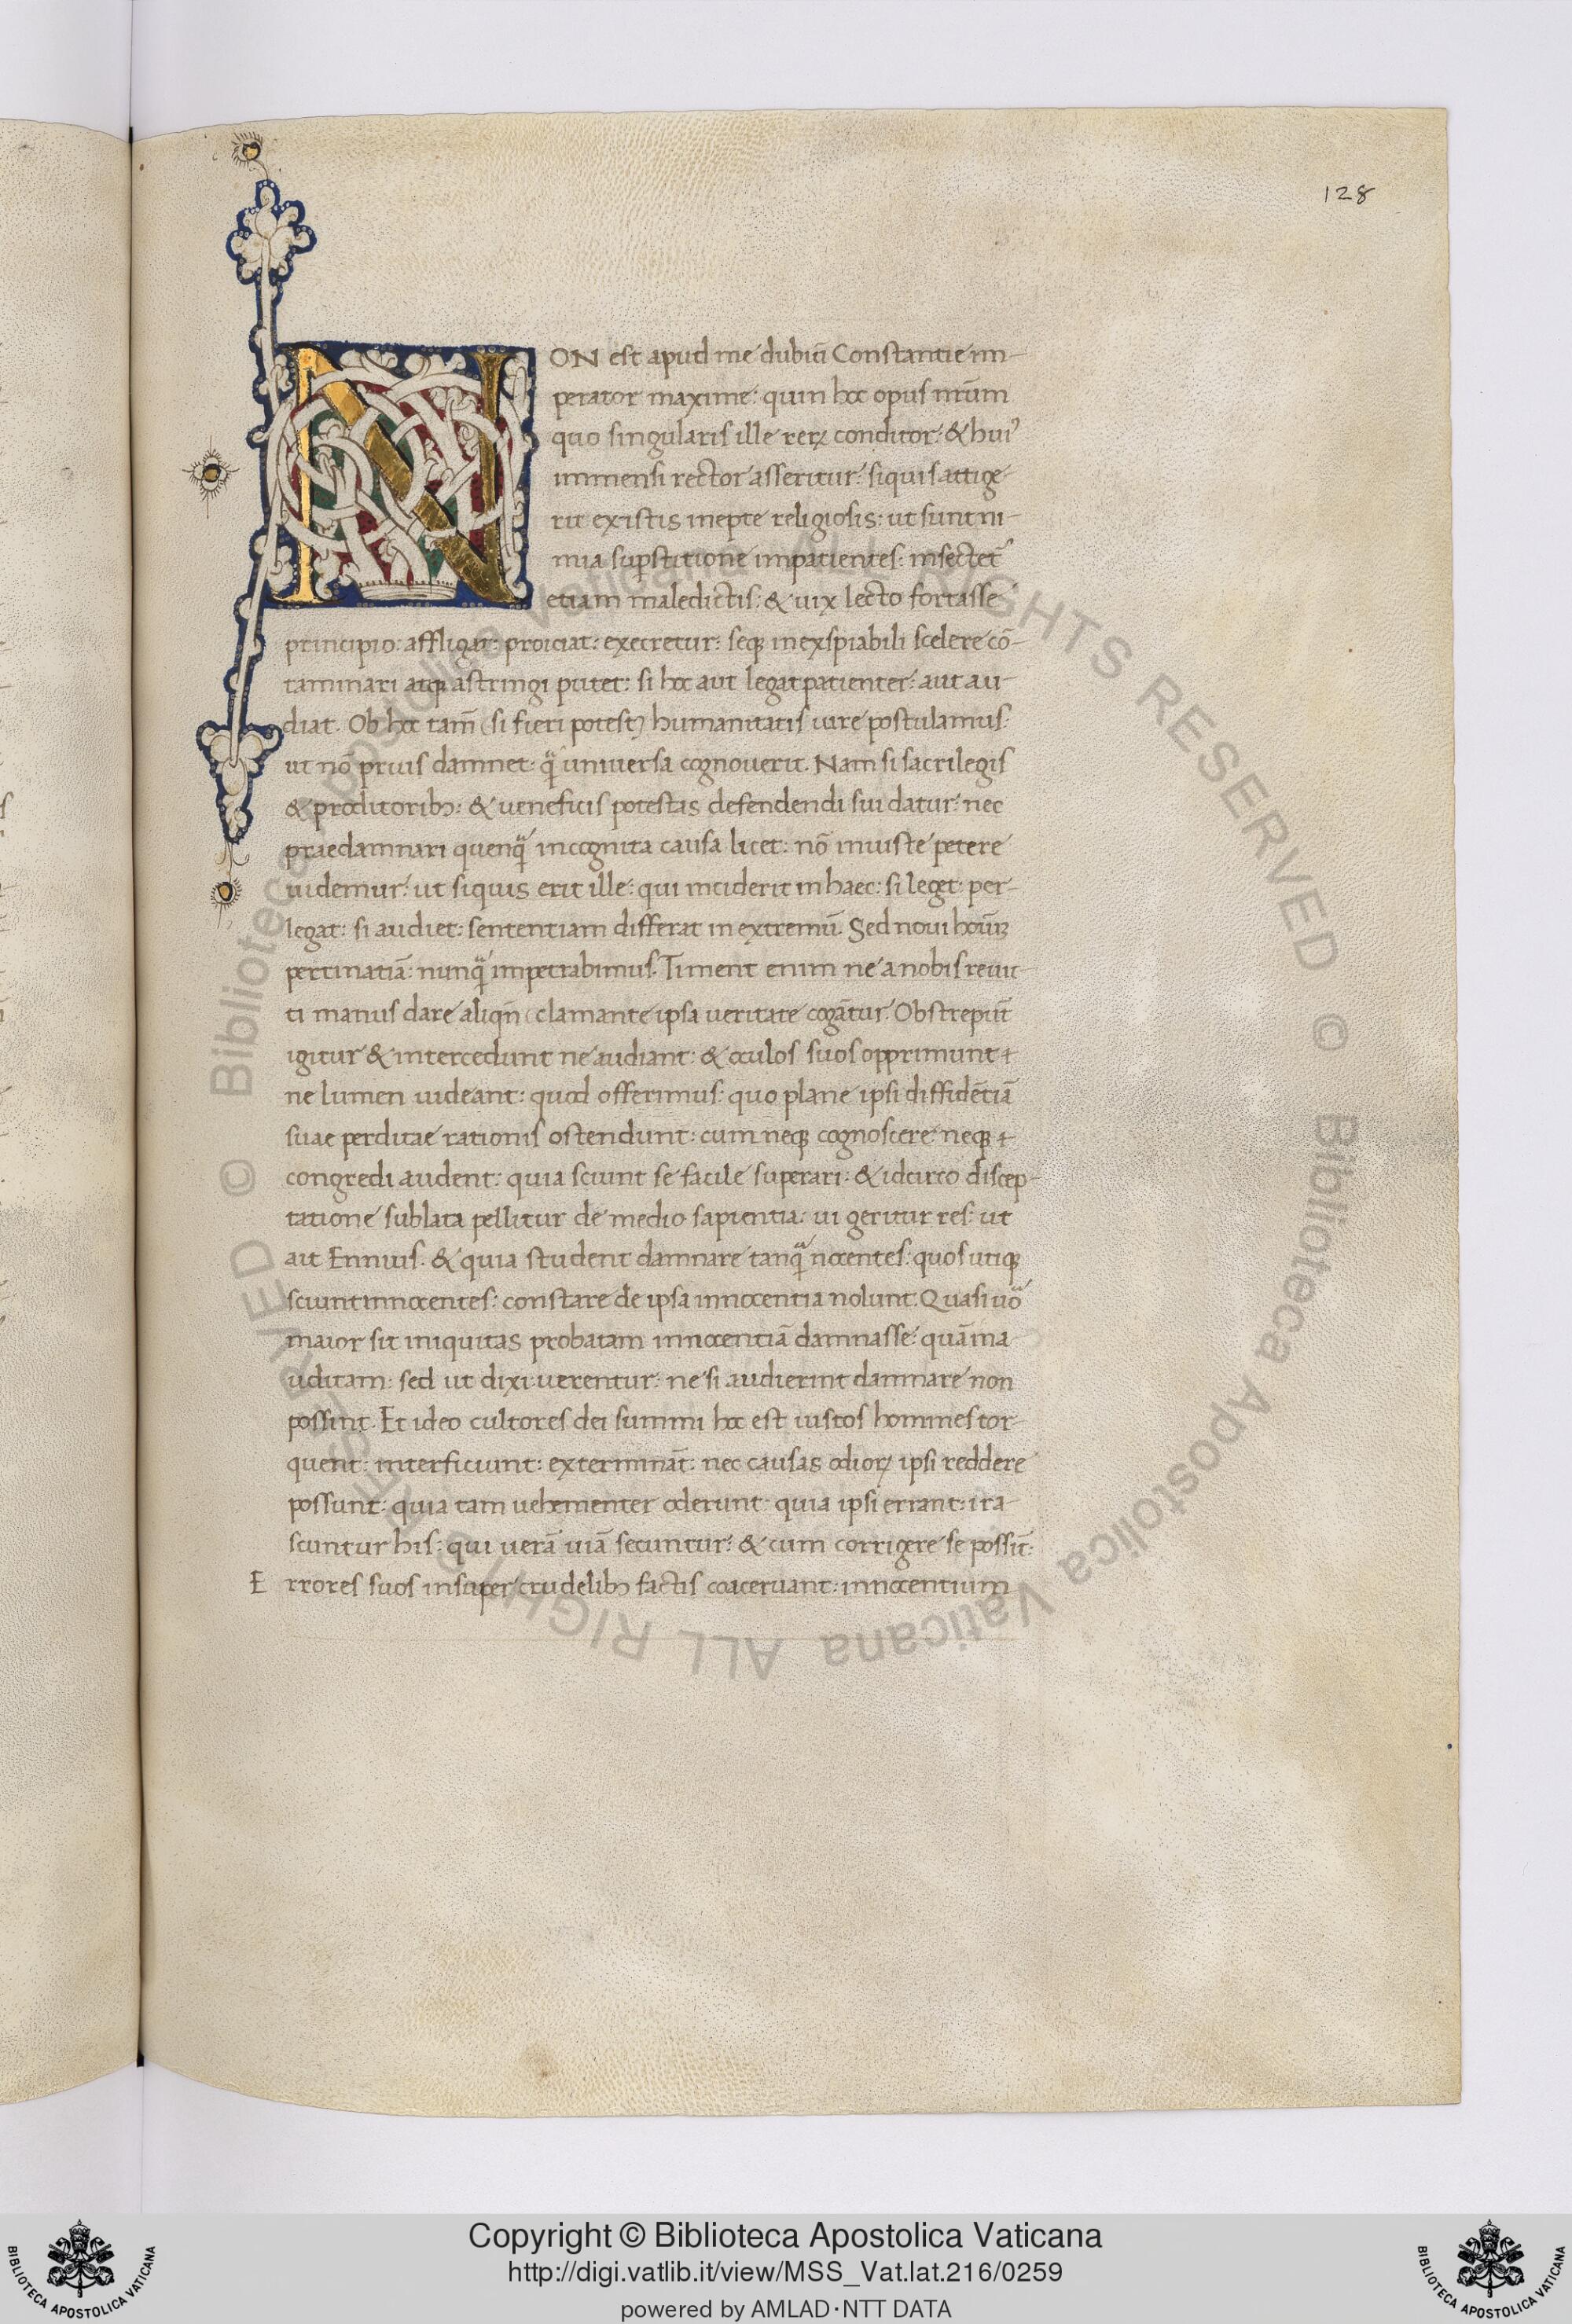 128
NON est apud me dubiū Constantie im-
perator maxime: quin hoc opus nr̄um
quo singularis ille rerꝝ conditor: & huiꝰ
immensi rector asseritur: siquis attige-
rit ex istis inepte religiosis: ut sunt ni-
mia supstitione impatientes: insectet᷑
etiam maledictis: & uix lecto fortasse
principio: affligat: proiciat: execretur: seqꝫ inexspiabili scelere cō-
taminari atqꝫ astringi putet: si hoc aut legat patienter: aut au-
diat. Ob hoc tam̄ (si fieri potest) humanitatis iure postulamus:
ut nō prius damnet: qͣ̄ universa cognouerit. Nam si sacrilegis
& proditoribꝫ: & ueneficis potestas defendendi sui datur: nec
praedamnari quenqͣ̄ incognita causa licet: nō iniuste petere
uidemur: ut siquis erit ille: qui inciderit in haec: si leget: per-
legat: si audiet: sententiam differat in extremū. Sed noui hoīuꝫ
pertinatiā: nunqͣ̄ impetrabimus. Timent enim ne a nobis reuic-
ti manus dare aliqn̄ (clamante ipsa ueritate cogātur. Obstrepūt
igitur & intercedunt ne audiant: & oculos suos opprimunt
ne lumen uideant: quod offerimus: quo plane ipsi diffidētiā
suae perditae rationis ostendunt: cum neqꝫ cognoscere: neqꝫ
congredi audent: quia sciunt se facile superari: & idcirco discep-
tatione sublata pellitur de medio sapientia: ui geritur res: ut
ait Ennius. & quia student damnare tanqͣ̄ nocentes: quos utiqꝫ
sciunt innocentes: constare de ipsa innocentia nolunt. Quasi uͦo
maior sit iniquitas probatam innocentiā damnasse: quā ina-
uditam: sed ut dixi: uerentur: ne si audierint damnare non
possint. Et ideo cultores dei summi hoc est iustos homines tor-
quent: interficiunt: extermināt: nec causas odioꝝ ipsi reddere
possunt: quia tam uehementer oderunt: quia ipsi errant: ira-
scuntur his: qui uerā uiā secuntur: & cum corrigere se possīt:
E rrores suos insuper crudelibꝫ factis coaceruant: innocentium
© Biblioteca Apostolica Vaticana ALL RIGHTS RESERVED © Biblioteca Apostolica Vaticana ALL RIGHTS RESERVED
Copyright © Biblioteca Apostolica Vaticana
http://digi.vatlib.it/view/MSS_Vat.lat.216/0259
powered by AMLAD·NTT DATA
BIBLIOTECA APOSTOLICA VATICANA
BIBLIOTECA APOSTOLICA VATICANA